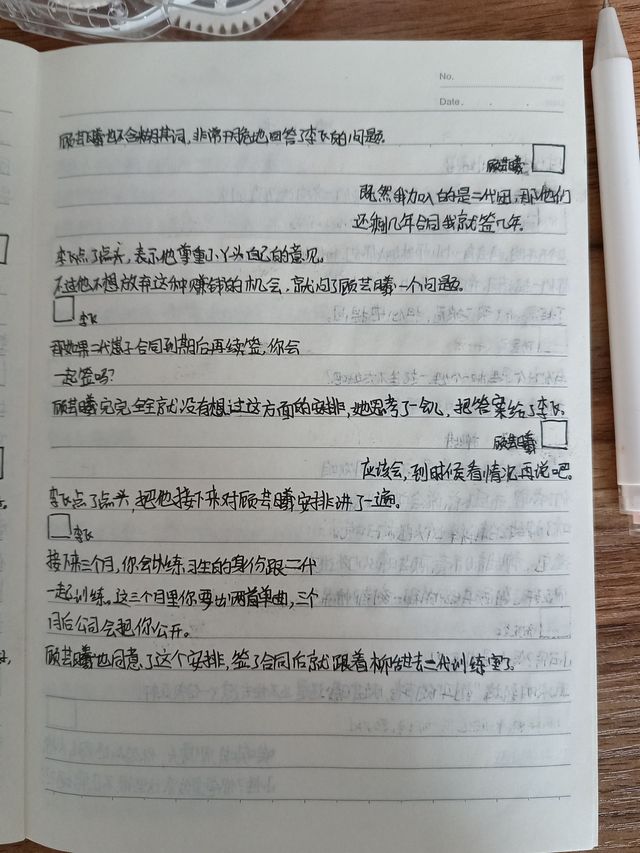 No.
Date.
顾芸曦也不含糊其词,非常开挠地回答了李飞的问题。
顾芸曦
既然我加入的是二代团,那他们
还剩几年合同我就签几年。
李飞点了点头,表示他尊重小丫头自己的意见。
不过他不想放弃这种赚钱的机会,就问了顾芸曦一个问题。
李飞
那如果二代崽子合同到期后再续签,你会
一起签吗?
顾芸曦完完全全就没有想过这方面的安排,她思考了一会儿,把答案给了李飞。
顾芸曦
应该会,到时候看情况再说吧。
李飞点了点头,把他接下来对顾芸曦安排讲了一遍。
李飞
接下来三个月,你会以练习生的身份跟二代
一起训练。这三个月里你要出两首单曲,三个
月后公司会把你公开。
顾芸曦也同意了这个安排,签了合同后就跟着柳姐去二代训练室了。